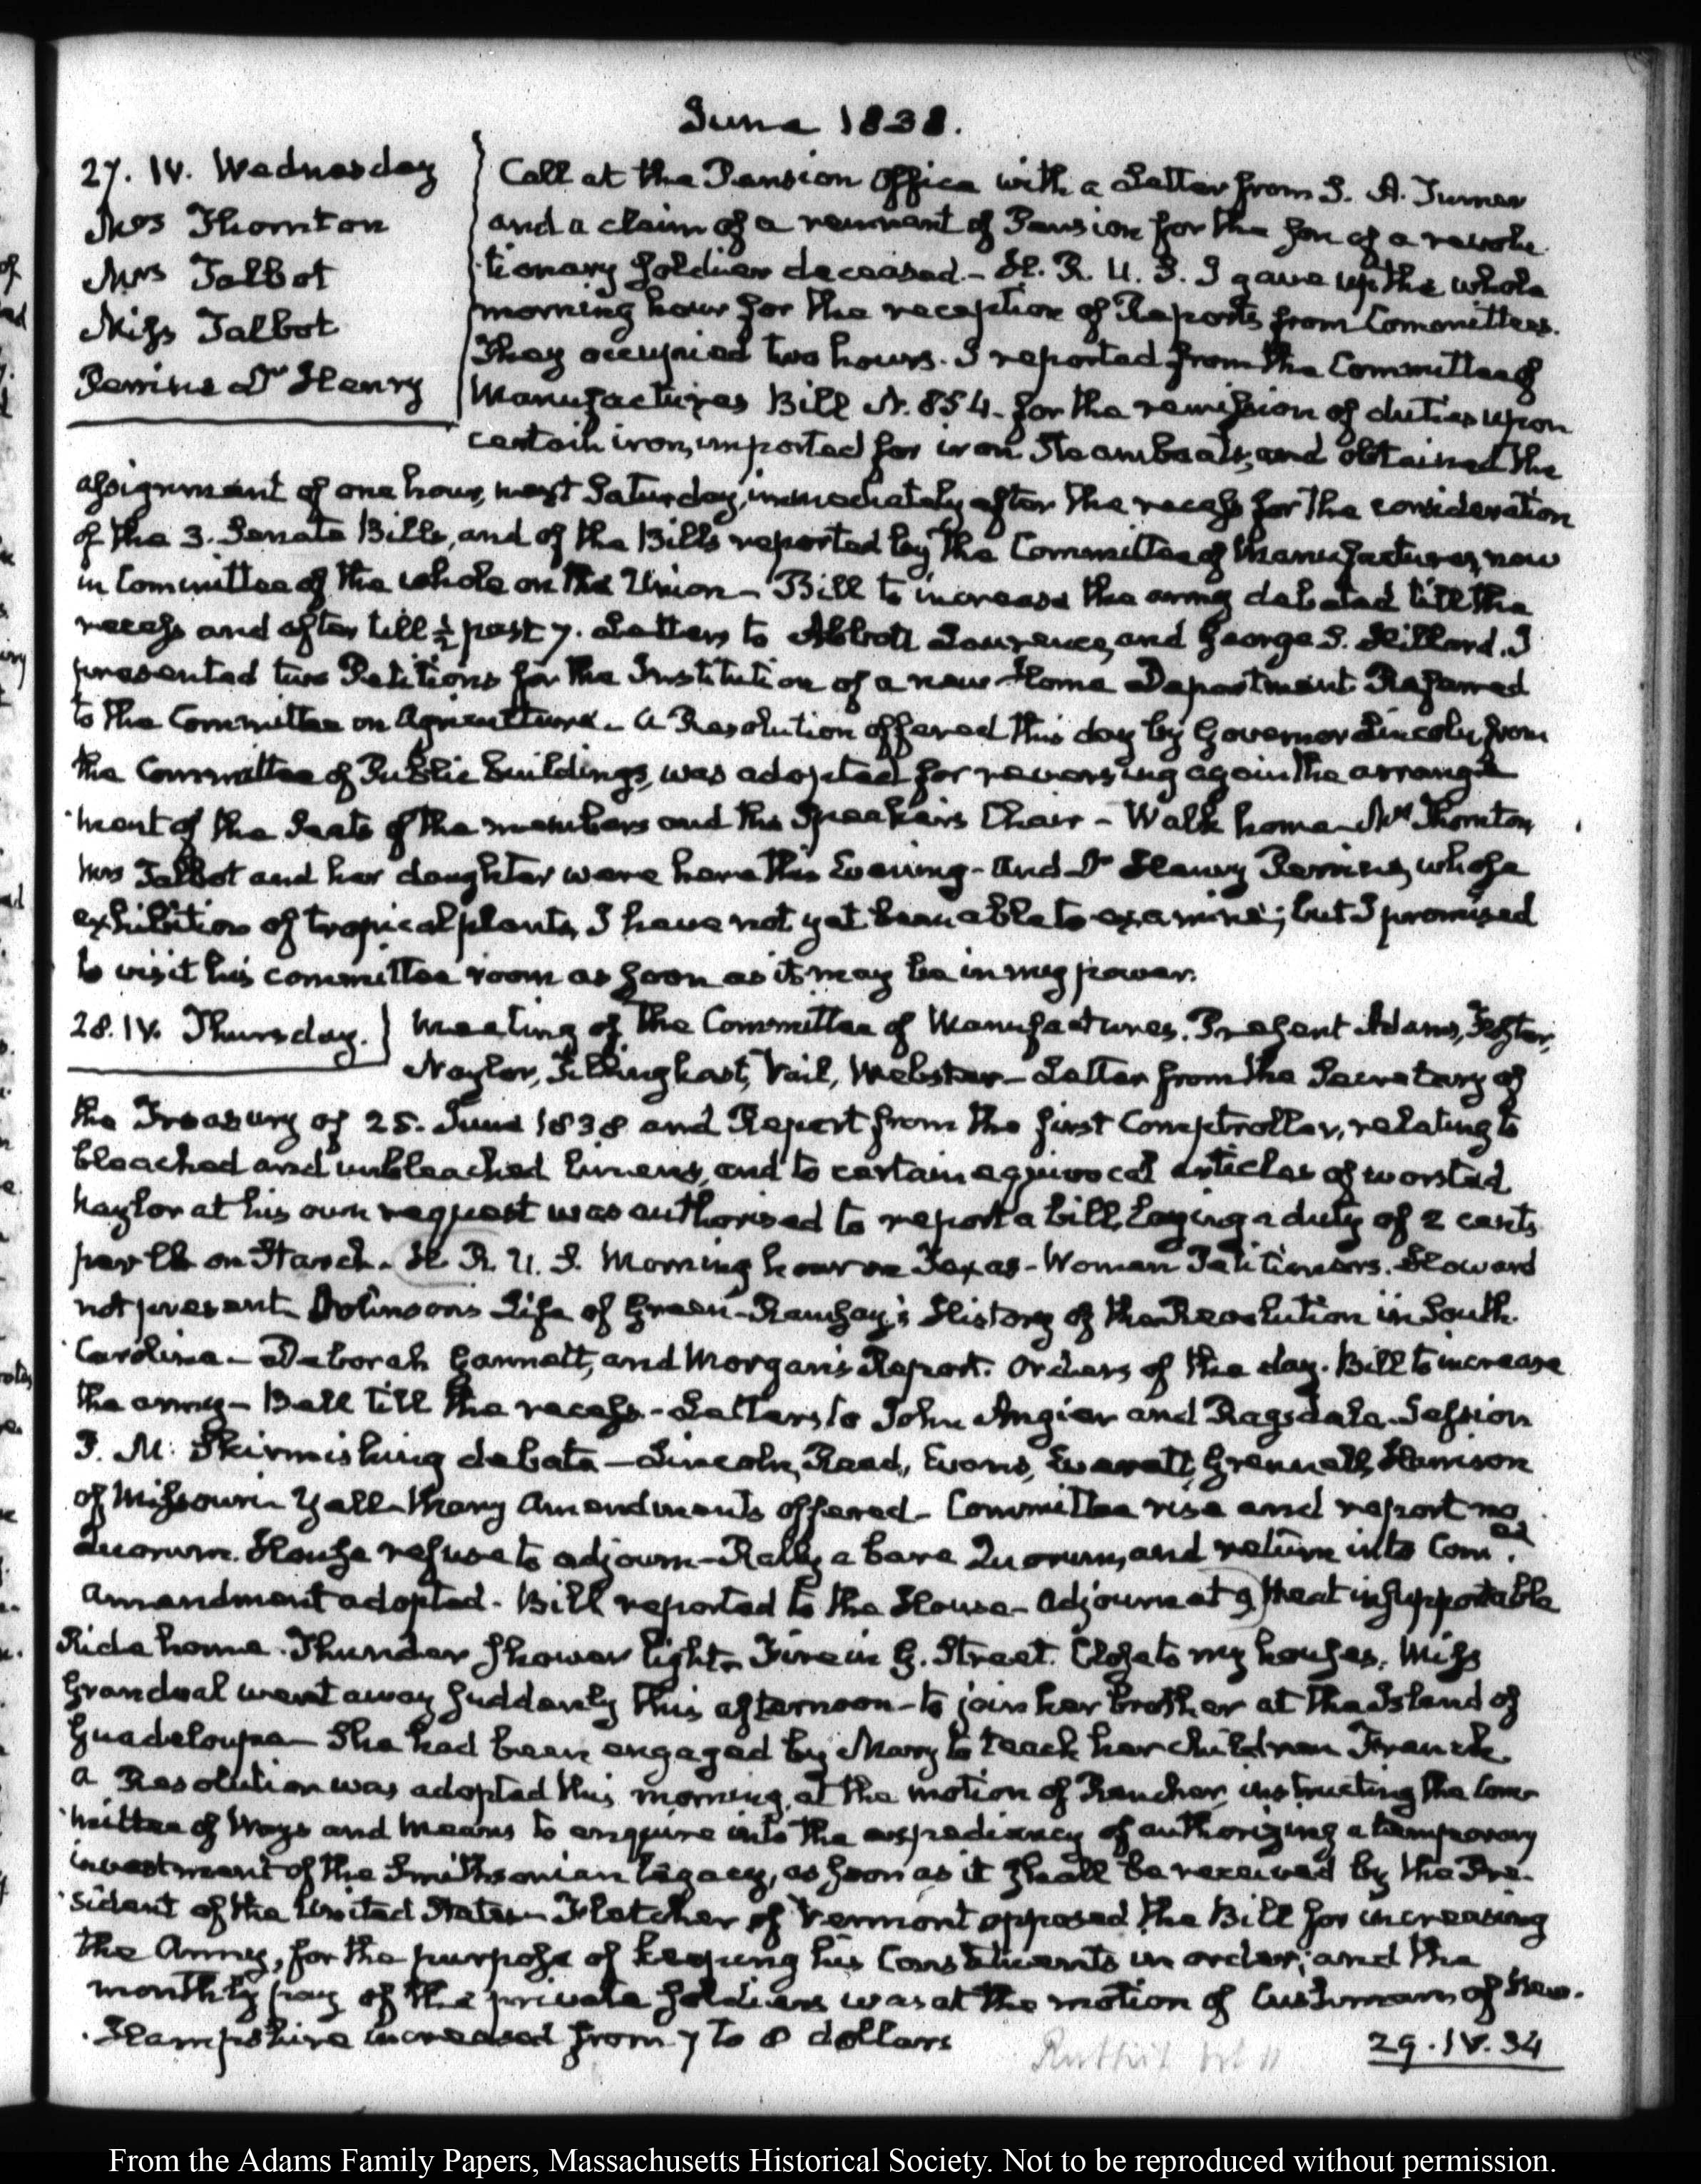 June 1838.
27. IV. Wednesday
Mrs Thornton
Mrs Talbot
Miss Talbot
Perrine Dr Henry
Call at the Pension Office with a Letter from S. A. Turner
and a claim of a remnant of Pension for the son of a revolu
tionary soldier deceased.- H. R. U. S. I gave up the whole
morning hour for the reception of Reports from Committees.
They occupied two hours. I reported from the Committee of
Manufactures Bill N. 854. for the remission of duties upon
certain iron, imported for iron Steamboats, and obtained the
assignment of one hour, next Saturday, immediately after the recess for the consideration
of the 3. Senate Bills, and of the Bills reported by the Committee of Manufactures, now
in Committee of the whole on the Union - Bill to increase the army debated till the
recess and after till ½ past 7. Letters to Abbott Lawrence, and George S. Hillard. I
presented two Petitions for the Institution of a new Home Department Referred
to the Committee on Agriculture. A Resolution offered this day by Governor Lincoln, from
the Committee of Public buildings, was adopted for reversing again the arrange
ment of the Seats of the members and the Speaker's Chair - Walk home - Mrs Thornton
Mrs Talbot and her daughter were here this Evening - and Dr Henry Perrine, whose
exhibition of tropical plants, I have not yet been able to examine; but I promised
to visit his committee room as soon as it may be in my power.
28. IV. Thursday.
Meeting of the Committee of Manufactures. Present Adams, Foster,
Naylor, Tillinghast, Vail, Webster - Letter from the Secretary of
the Treasury of 25. June 1838 and Report from the first Comptroller, relating to
bleached and unbleached linens, and to certain equivocal articles of worsted
Naylor at his own request was authorised to report a bill, laying a duty of 2 cents
per lb on Starch. H. R. U. S. Morning hour on Texas - Women Petitioners. Howard
not present. Johnson's Life of Green - Ramsay's History of the Revolution in South
Carolina - Deborah Gannett, and Morgan's Report. Orders of the day. Bill to increase
the army - Bell till the recess - Letters to John Angier and Ragsdale. Session
P. M. Skirmishing debate - Lincoln, Reed, Evans, Everett, Grennell, Harrison
of Missouri Yell - Many Amendments offered - Committee rise and report no
Quorum. House refuse to adjourn - Rally a bare Quorum, and return into Com.ee
Amendment adopted - Bill reported to the House - Adjourn at 9 Heat insupportable
Ride home. Thunder shower light - Fire in G. Street. Close to my houses. Miss
Grandval went away suddenly this afternoon - to join her brother at the Island of
Guadeloupe - She had been engaged by Mary to teach her children French.
A Resolution was adopted this morning, at the motion of Rencher, instructing the Com
mittee of Ways and Means to enquire into the expediency of authorizing a temporary
investment of the Smithsonian legacy, as soon as it shall be received by the Pre-
sident of the United States - Fletcher of Vermont opposed the Bill for increasing
the Army, for the purpose of keeping his Constituents in order; and the
monthly pay of the private soldiers was at the motion of Cushman of New-
Hampshire increased from 7 to 8 dollars
29. IV. 34
From the Adams Family Papers, Massachusetts Historical Society. Not to be reproduced without permission.